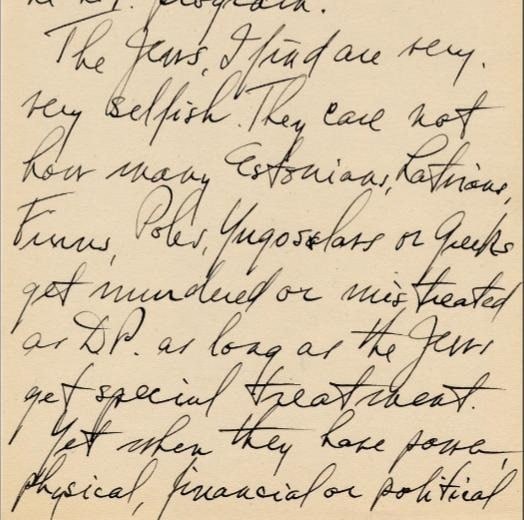 program.
The Jews, I find are very,
very selfish. They care not
how many Estonians, Latvians,
Finns, Poles, Yugoslavs or Greeks
get murdered or mistreated
as D.P. as long as the Jews
get special treatment.
Yet when they have power,
physical, financial or political